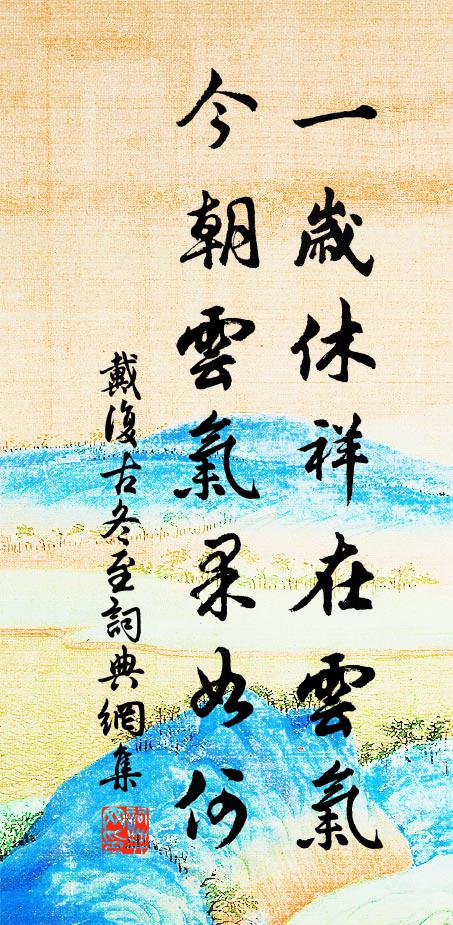 一歲休祥在雲氣
今朝雲氣果如何
戴復古冬至詞典網集